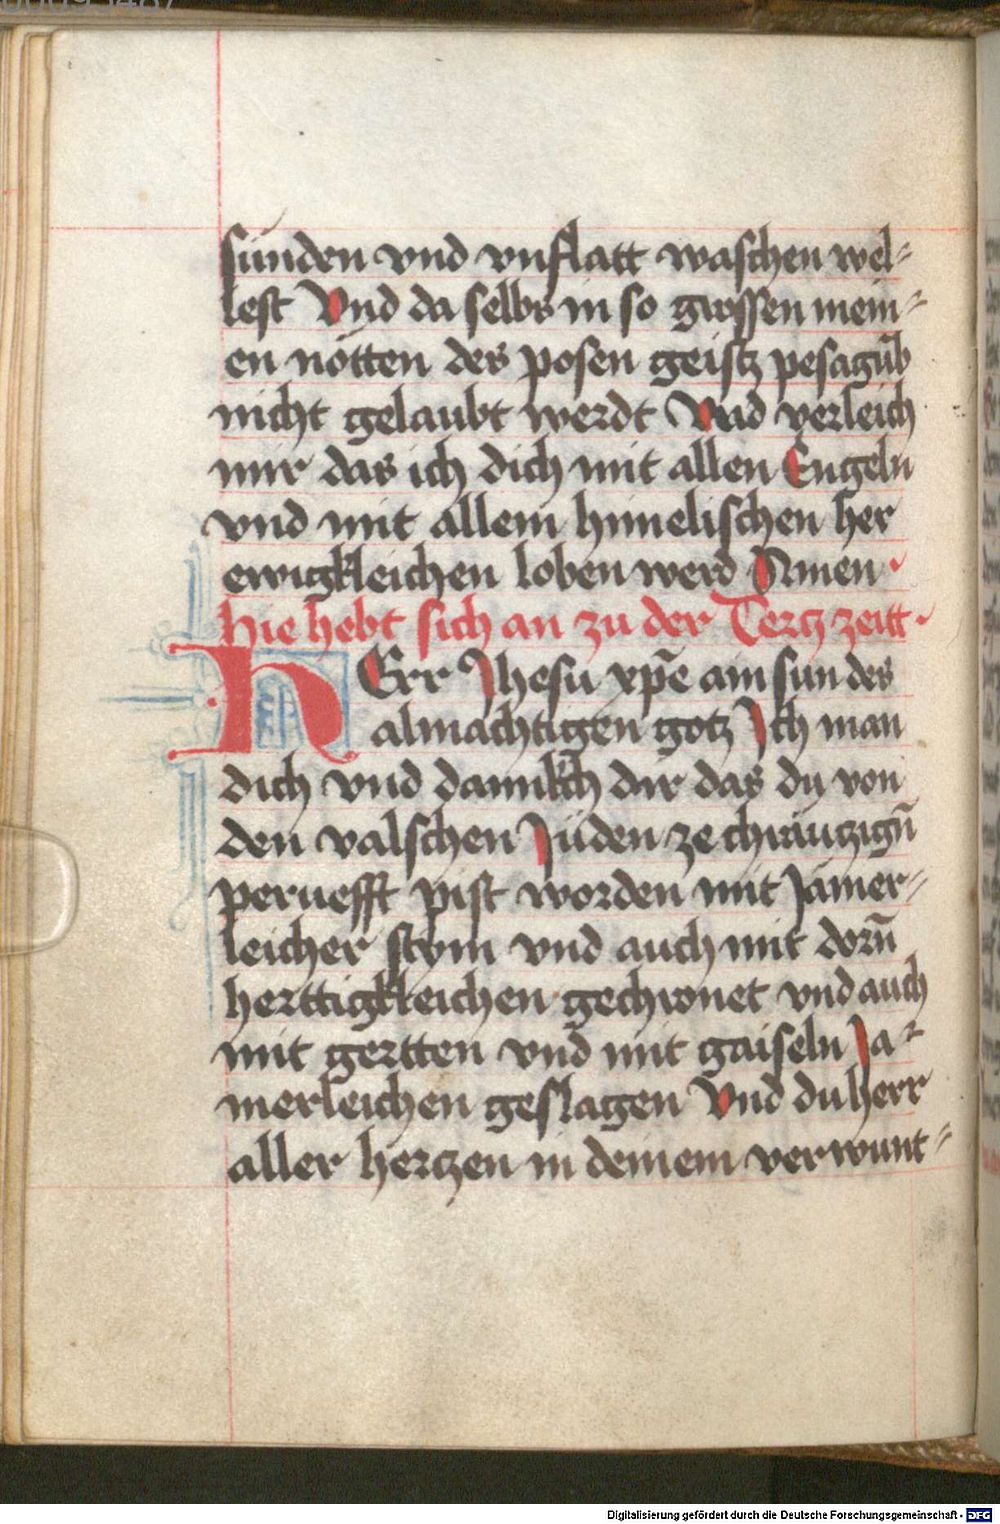 sünden vnd vnflatt waschen wel-
lest Vnd da selbs in so grossen mein-
en nötten des posen geistz pesagūb
nicht gelaubt werdt Vnd verleich
mir das ich dich mit allen Engeln
vnd mit allem himelischen her
ewigkleichen loben werd Amen
hie hebt sich an zu der Tertz zeitt
HErr Jhesu xp̄e ain sun des
almächtigen gotz Ich man
dich vnd dannkch dir das du von
den valschen Jüden ze chräutzigū
peruefft pist worden mit Jämer-
leicher stym vnd auch mit dorn̄
herttigkleichen gechronet vnd auch
mit gertten vnd mit gaiseln Ja-
merleichen geslagen Vnd du herr
aller hertzen in deinem verwunt-
Digitalisierung gefördert durch die Deutsche Forschungsgemeinschaft - DFG